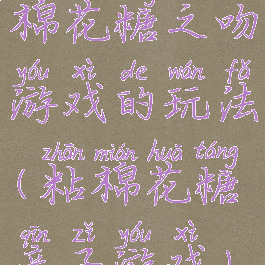 棉花糖之吻
yóu xì de wán fǎ
游戏的玩法
zhān mián huā táng
(粘棉花糖
qīn zǐ yóu xì
亲子游戏)